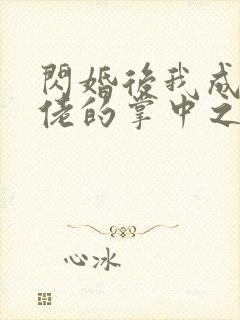 閃婚後我成
佬的掌中之
心冰